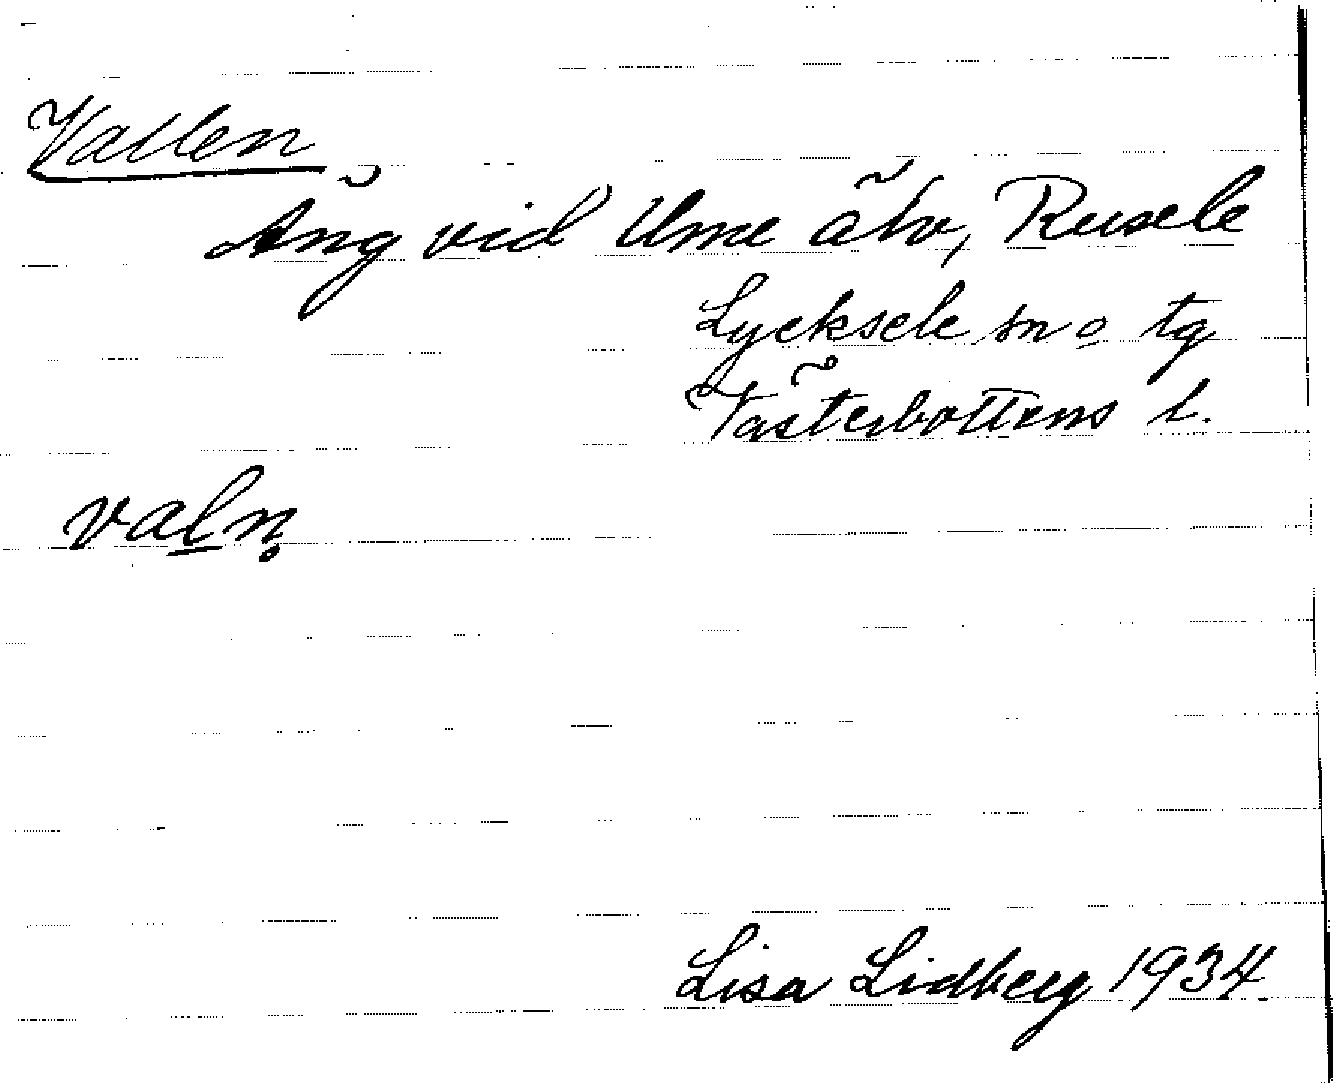 Vallen
Äng vid Ume älv, Rusele
Lycksele sn o tg
Västerbottens l.
valn̥
Lisa Lidberg 1934.